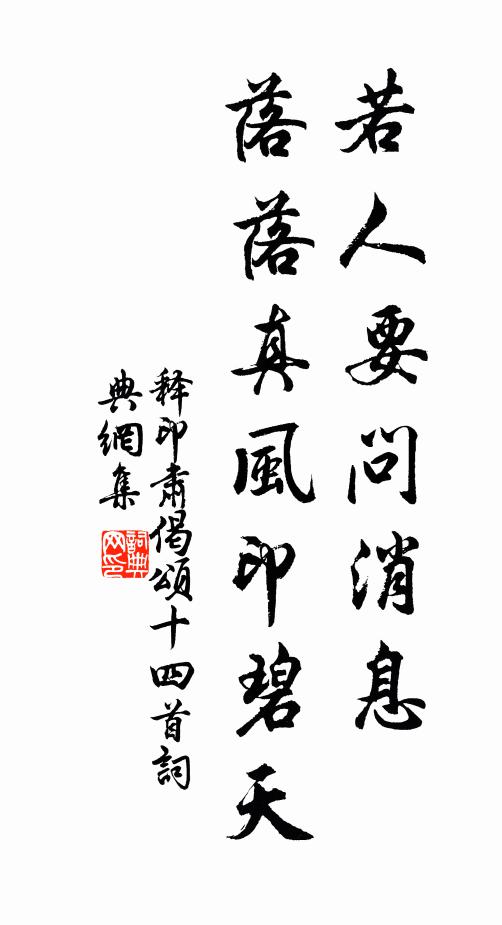 若人要問消息
落落真風印碧天
释印肅偈頌十四首詞
典網集
詞典
网印